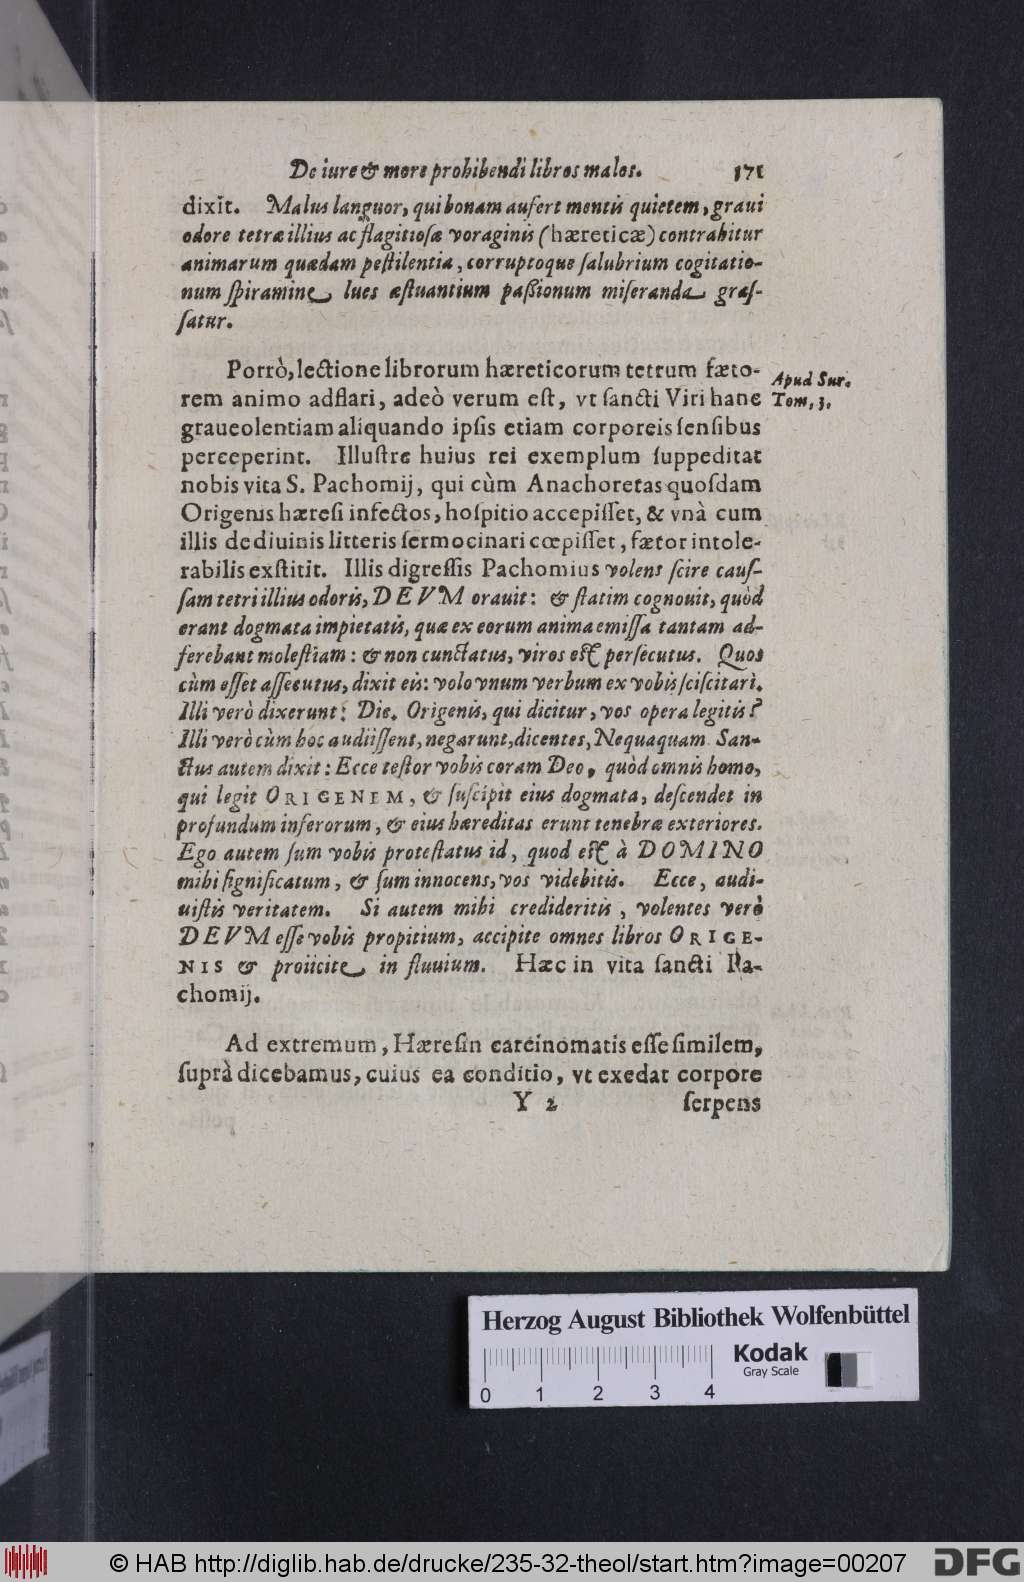 De iure & more prohibendi libros malos. 171
dixit. Malus languor, qui bonam aufert mentis quietem, graui
odore tetræ illius ac flagitiosæ voraginis (hæreticæ) contrahitur
animarum quædam pestilentia, corruptoque salubrium cogitatio-
num spiramine lues æstuantium passionum miseranda gras-
satur.
Porrò, lectione librorum hæreticorum tetrum fæto-
rem animo adflari, adeò verum est, vt sancti Viri hanc
graueolentiam aliquando ipsis etiam corporeis sensibus
perceperint. Illustre huius rei exemplum suppeditat
nobis vita S. Pachomij, qui cùm Anachoretas quosdam
Origenis hæresi infectos, hospitio accepisset, & vnà cum
illis de diuinis litteris sermocinari cœpisset, fætor intole-
rabilis exstitit. Illis digressis Pachomius volens scire caus-
sam tetri illius odoris, DEVM orauit: & statim cognouit, quòd
erant dogmata impietatis, quæ ex eorum anima emissa tantam ad-
ferebant molestiam: & non cunctatus, viros est persecutus. Quos
cùm esset assecutus, dixit eis: volo vnum verbum ex vobis sciscitari.
Illi verò dixerunt: Dic. Origenis, qui dicitur, vos opera legitis?
Illi verò cùm hoc audiissent, negarunt, dicentes, Nequaquam. San-
ctus autem dixit: Ecce testor vobis coram Deo, quòd omnis homo,
qui legit ORIGENEM, & suscipit eius dogmata, descendet in
profundum inferorum, & eius hæreditas erunt tenebræ exteriores.
Ego autem sum vobis protestatus id, quod est à DOMINO
mihi significatum, & sum innocens, vos videbitis. Ecce, audi-
uistis veritatem. Si autem mihi credideritis, volentes verò
DEVM esse vobis propitium, accipite omnes libros ORIGE-
NIS & proiicite in fluuium. Hæc in vita sancti Pa-
chomij.
Ad extremum, Hæresin carcinomatis esse similem,
suprà dicebamus, cuius ea conditio, vt exedat corpore
Y 2 serpens
Apud Sur.
Tom. 3.
Herzog August Bibliothek Wolfenbüttel
0 1 2 3 4
Kodak
Gray Scale
© HAB http://diglib.hab.de/drucke/235-32-theol/start.htm?image=00207
DFG